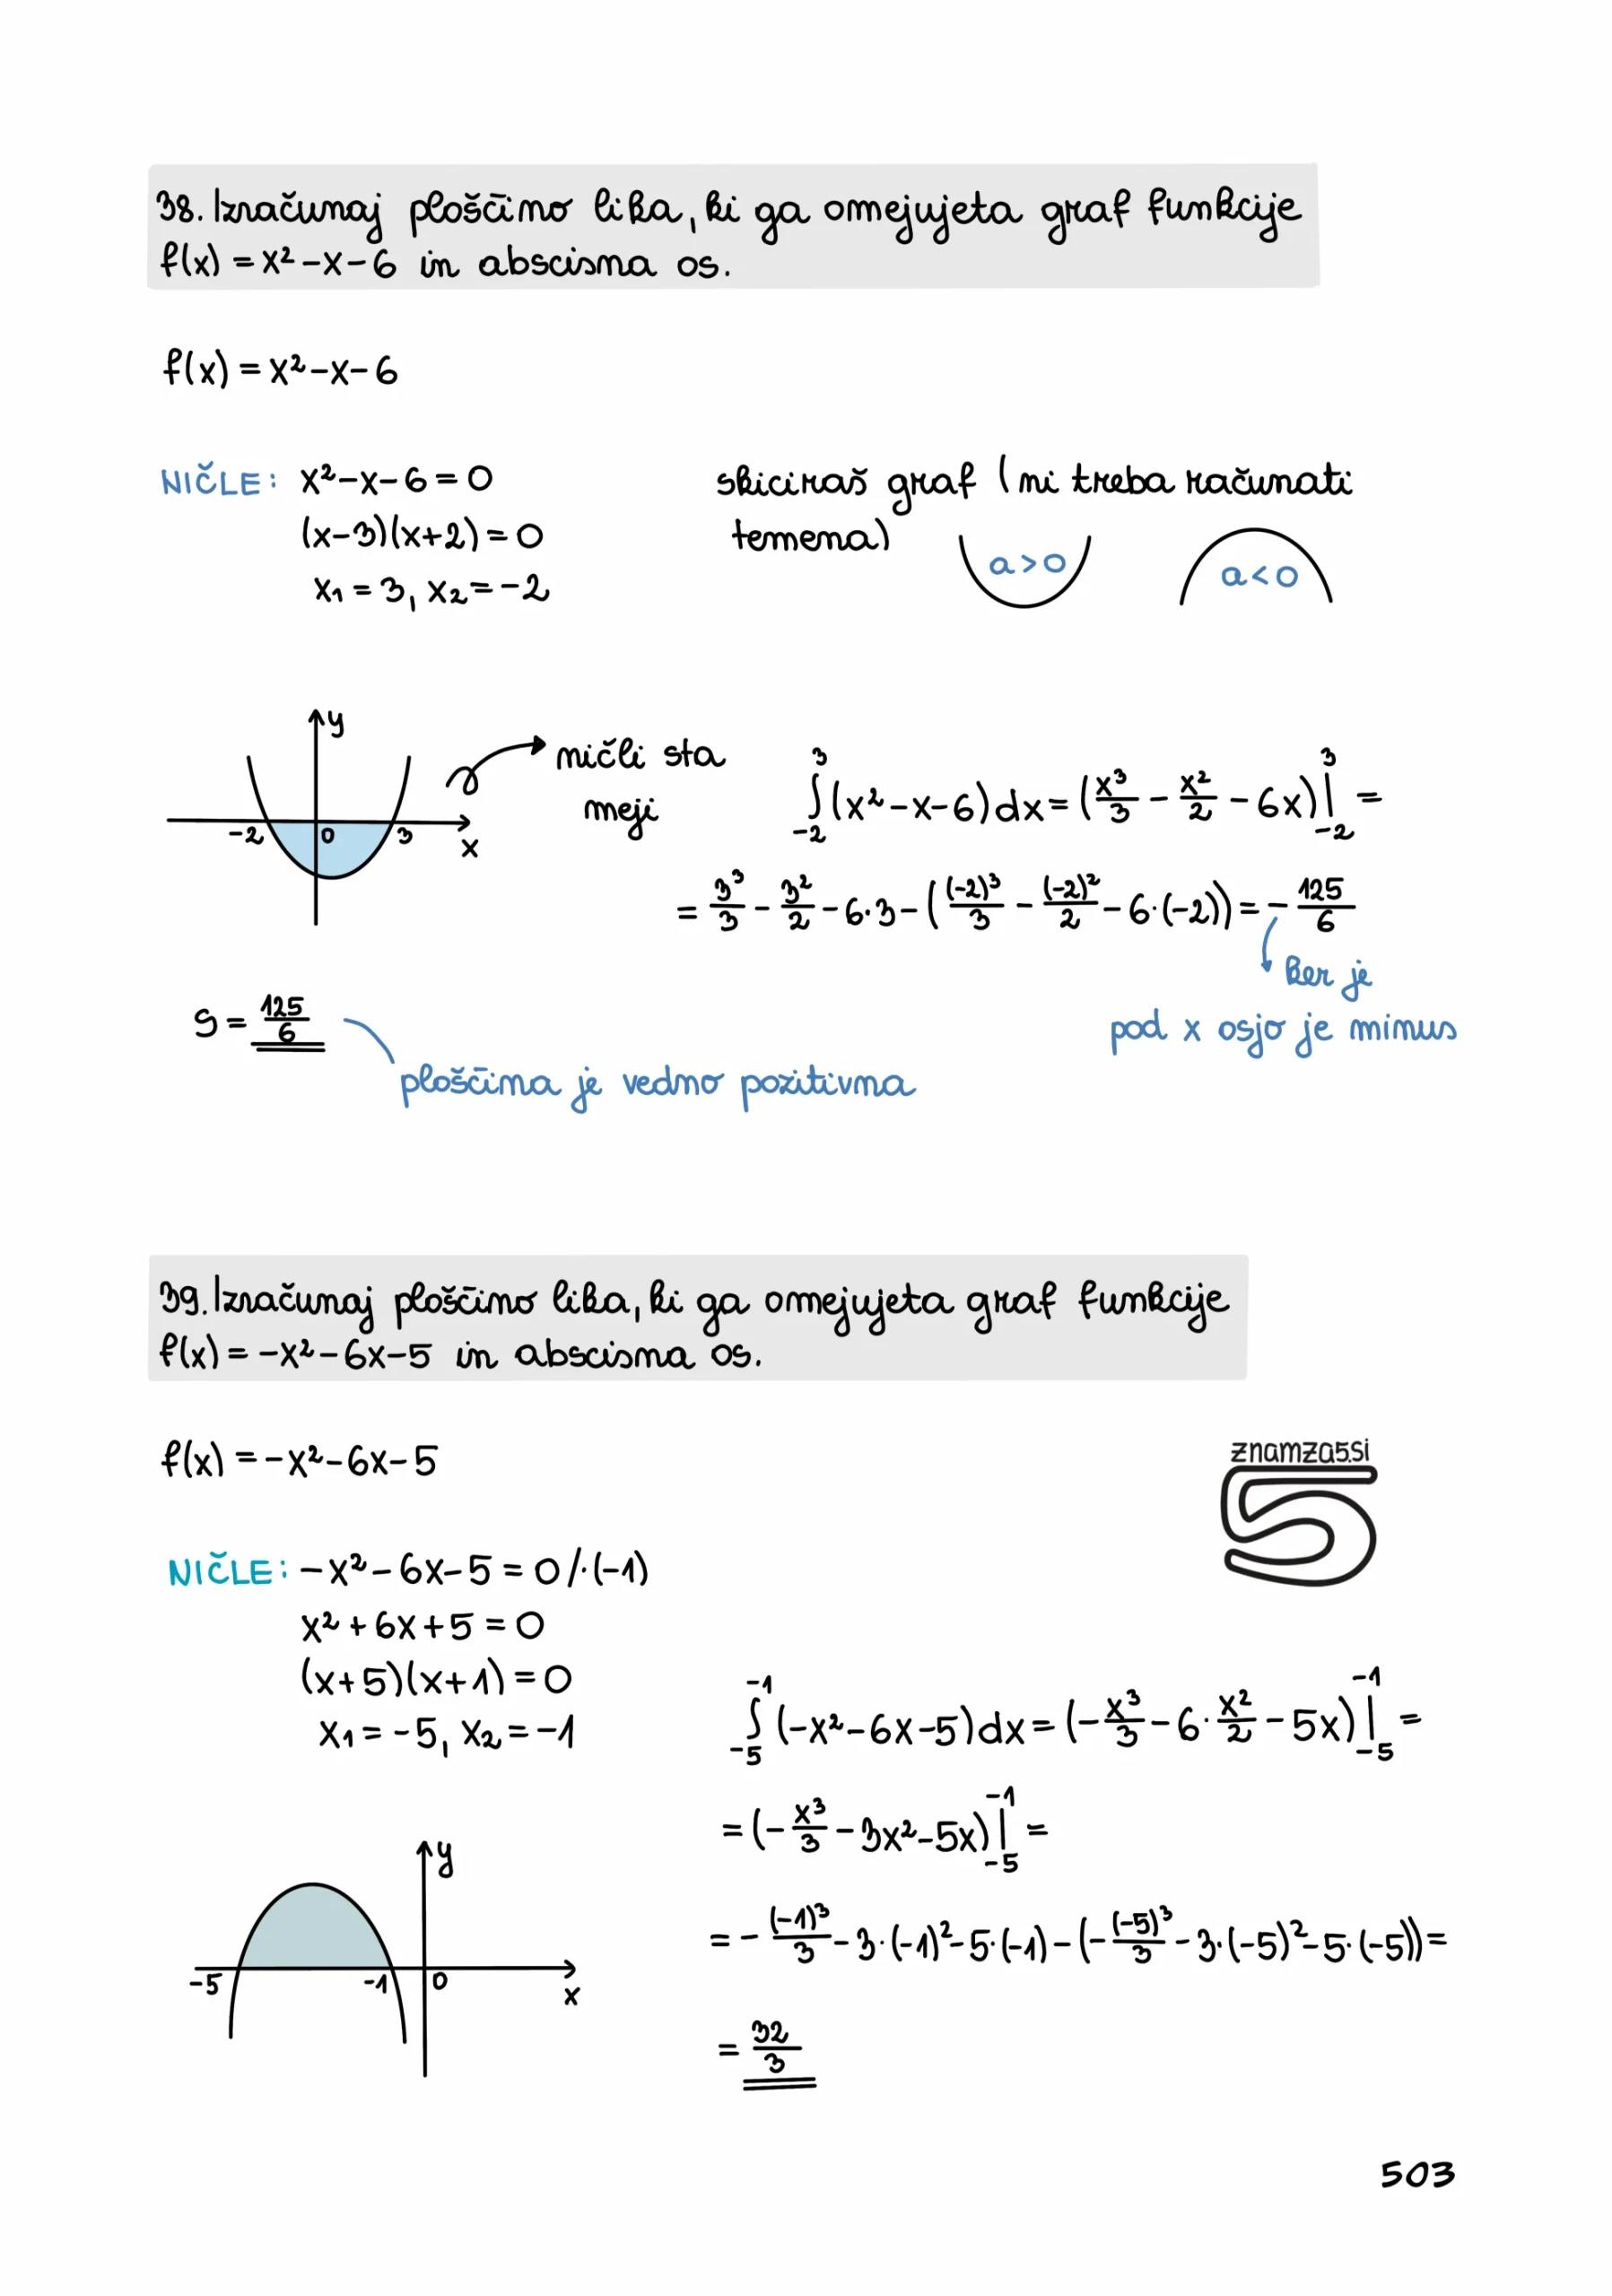 38. Izračunaj ploščino lika, ki ga omejujeta graf funkcije
f(x) = x² - x - 6 in abscisna os.
f(x) = x² - x - 6
NIČLE: x² - x - 6 = 0
(x-3)(x+2) = 0
x₁ = 3, x₂ = -2
skiciraš graf (ni treba računati
temena)
a > 0
a < 0
y
-2 0 3 x
ničli sta
meji
∫₋₂³ (x² - x - 6) dx = (x³/3 - x²/2 - 6x)|₋₂³ =
= 3³/3 - 3²/2 - 6·3 - ((-2)³/3 - (-2)²/2 - 6·(-2)) = - 125/6
ker je
pod x osjo je minus
S = 125/6
ploščina je vedno pozitivna
39. Izračunaj ploščino lika, ki ga omejujeta graf funkcije
f(x) = -x² - 6x - 5 in abscisna os.
f(x) = -x² - 6x - 5
znamza5.si
5
NIČLE: -x² - 6x - 5 = 0 /·(-1)
x² + 6x + 5 = 0
(x+5)(x+1) = 0
x₁ = -5, x₂ = -1
∫₋₅⁻¹ (-x² - 6x - 5) dx = (-x³/3 - 6·x²/2 - 5x)|₋₅⁻¹ =
= (-x³/3 - 3x² - 5x)|₋₅⁻¹ =
= - (-1)³/3 - 3·(-1)² - 5·(-1) - (- (-5)³/3 - 3·(-5)² - 5·(-5)) =
= 32/3
y
-5 -1 0 x
503